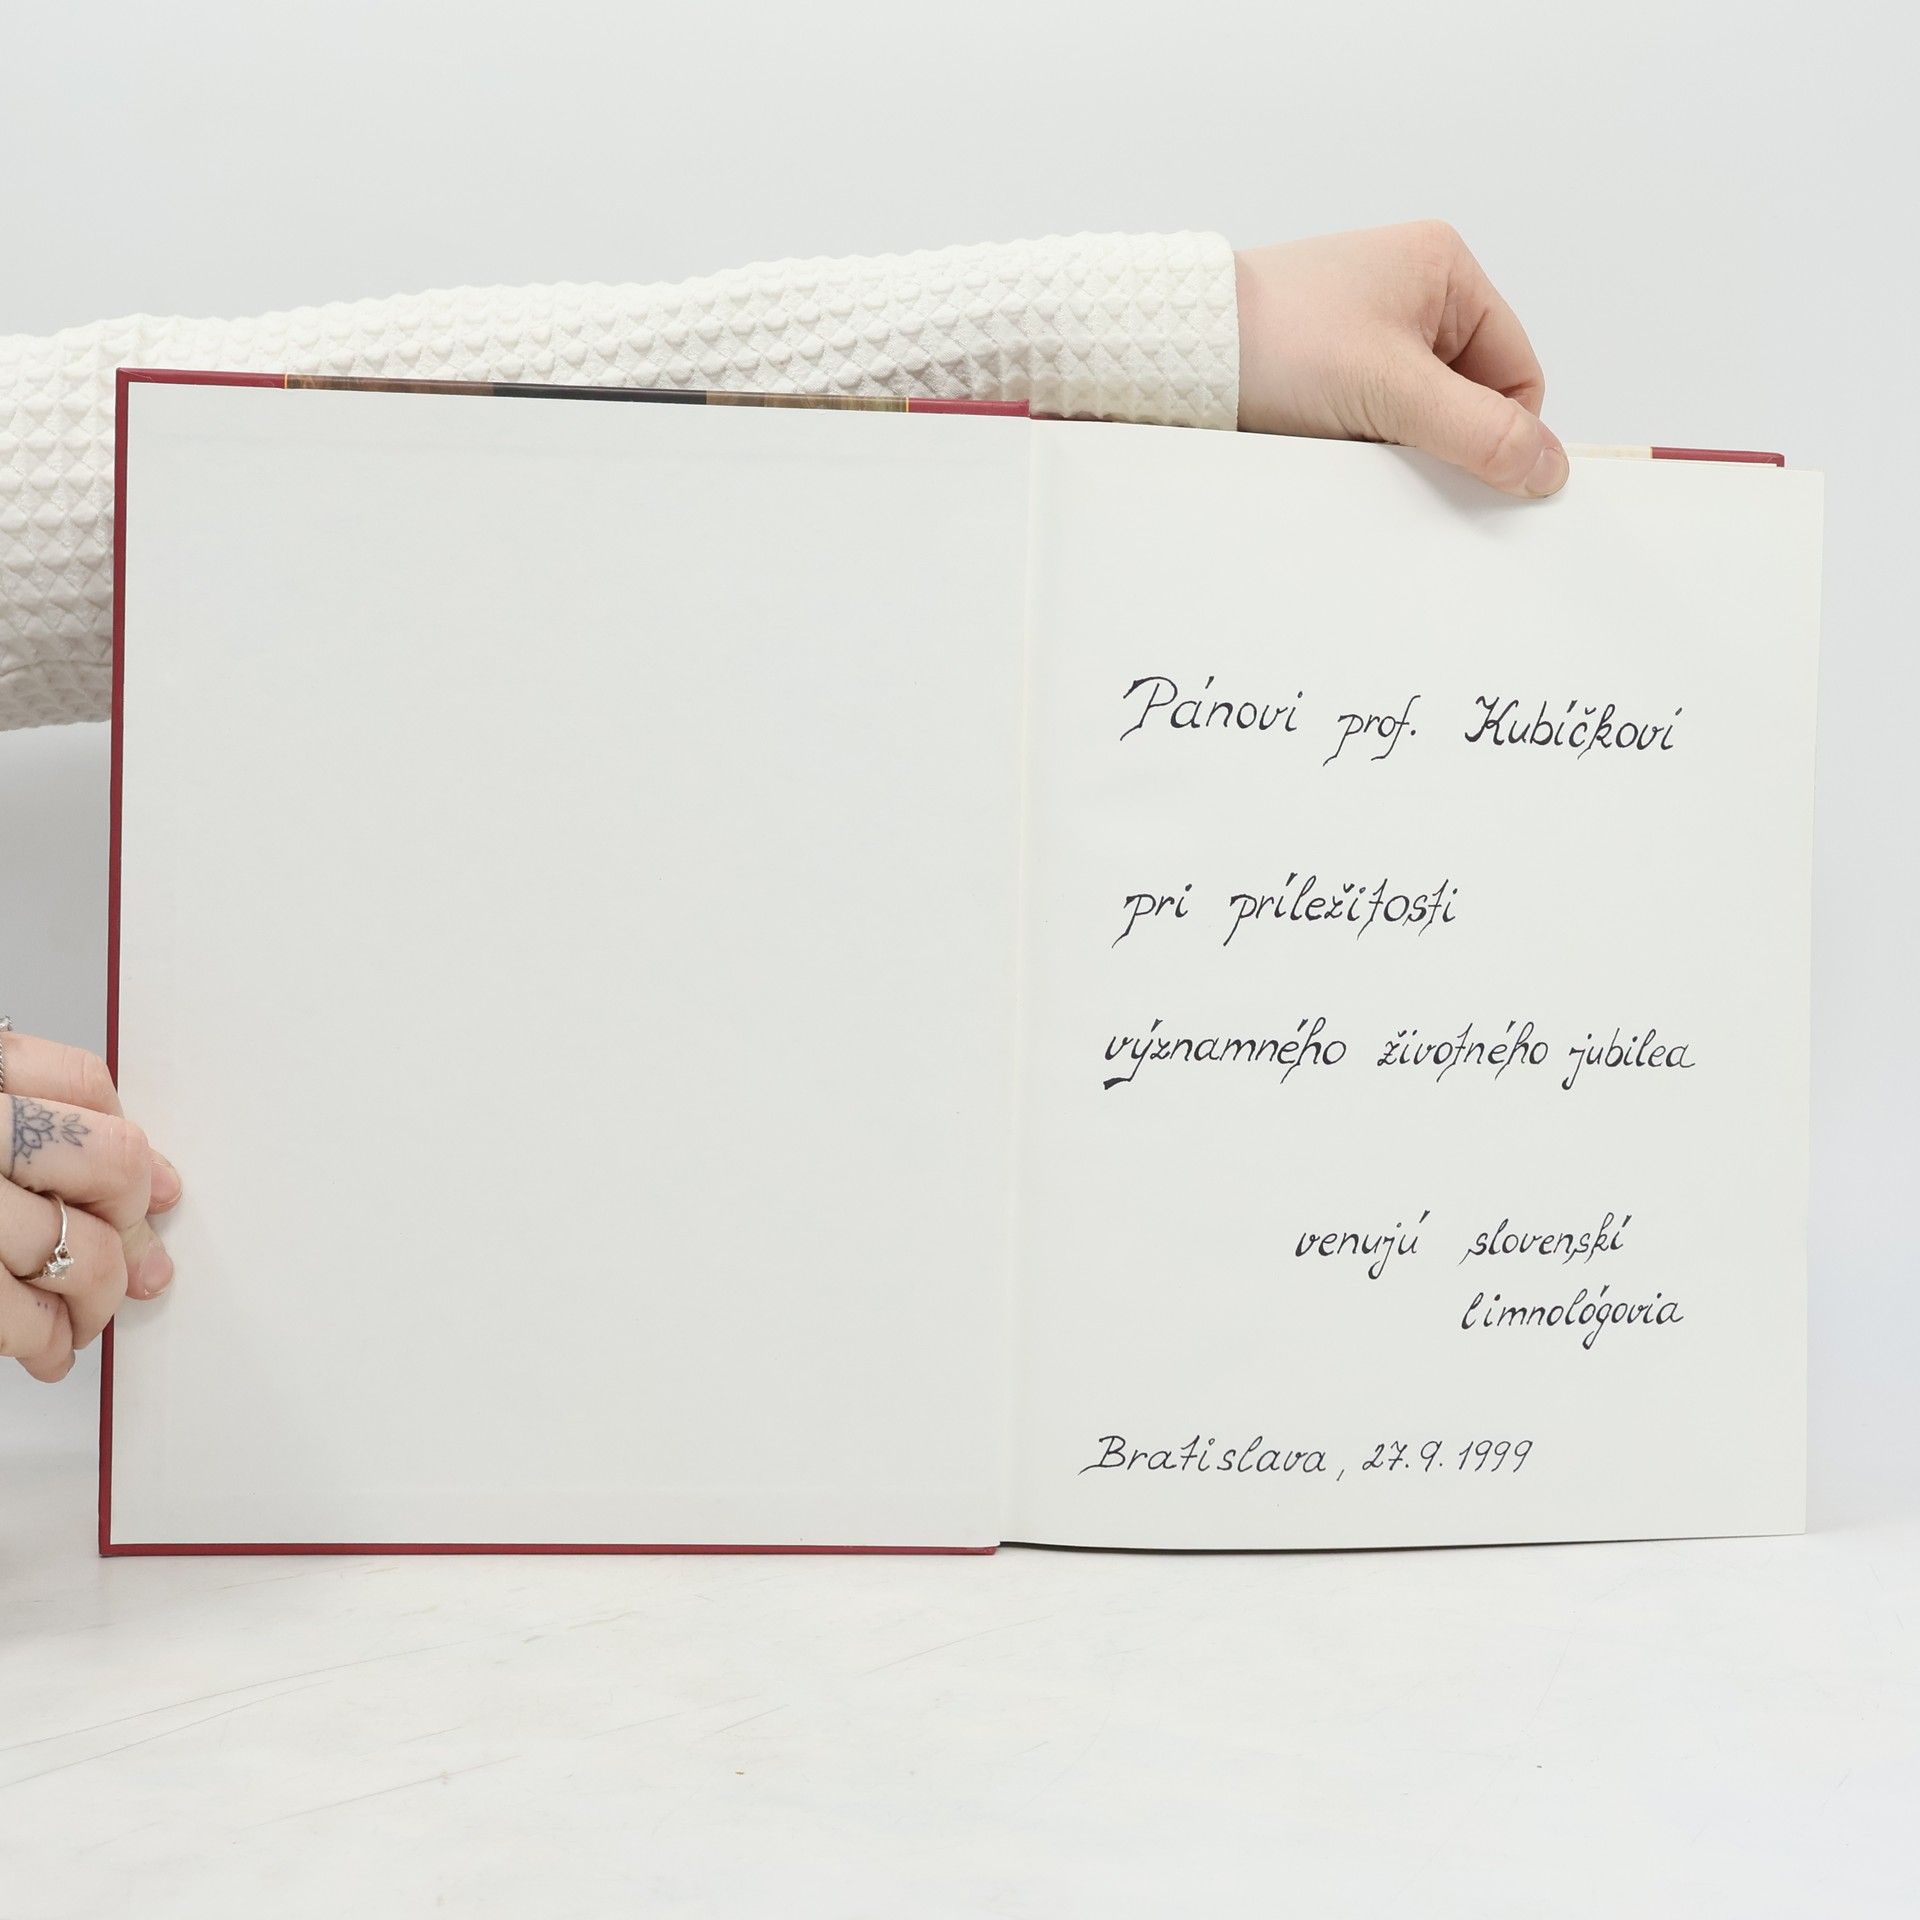 Pánovi prof. Kubíčkovi
pri príležitosti
významného životného jubilea
venujú slovenskí
limnológovia
Bratislava, 27.9.1999